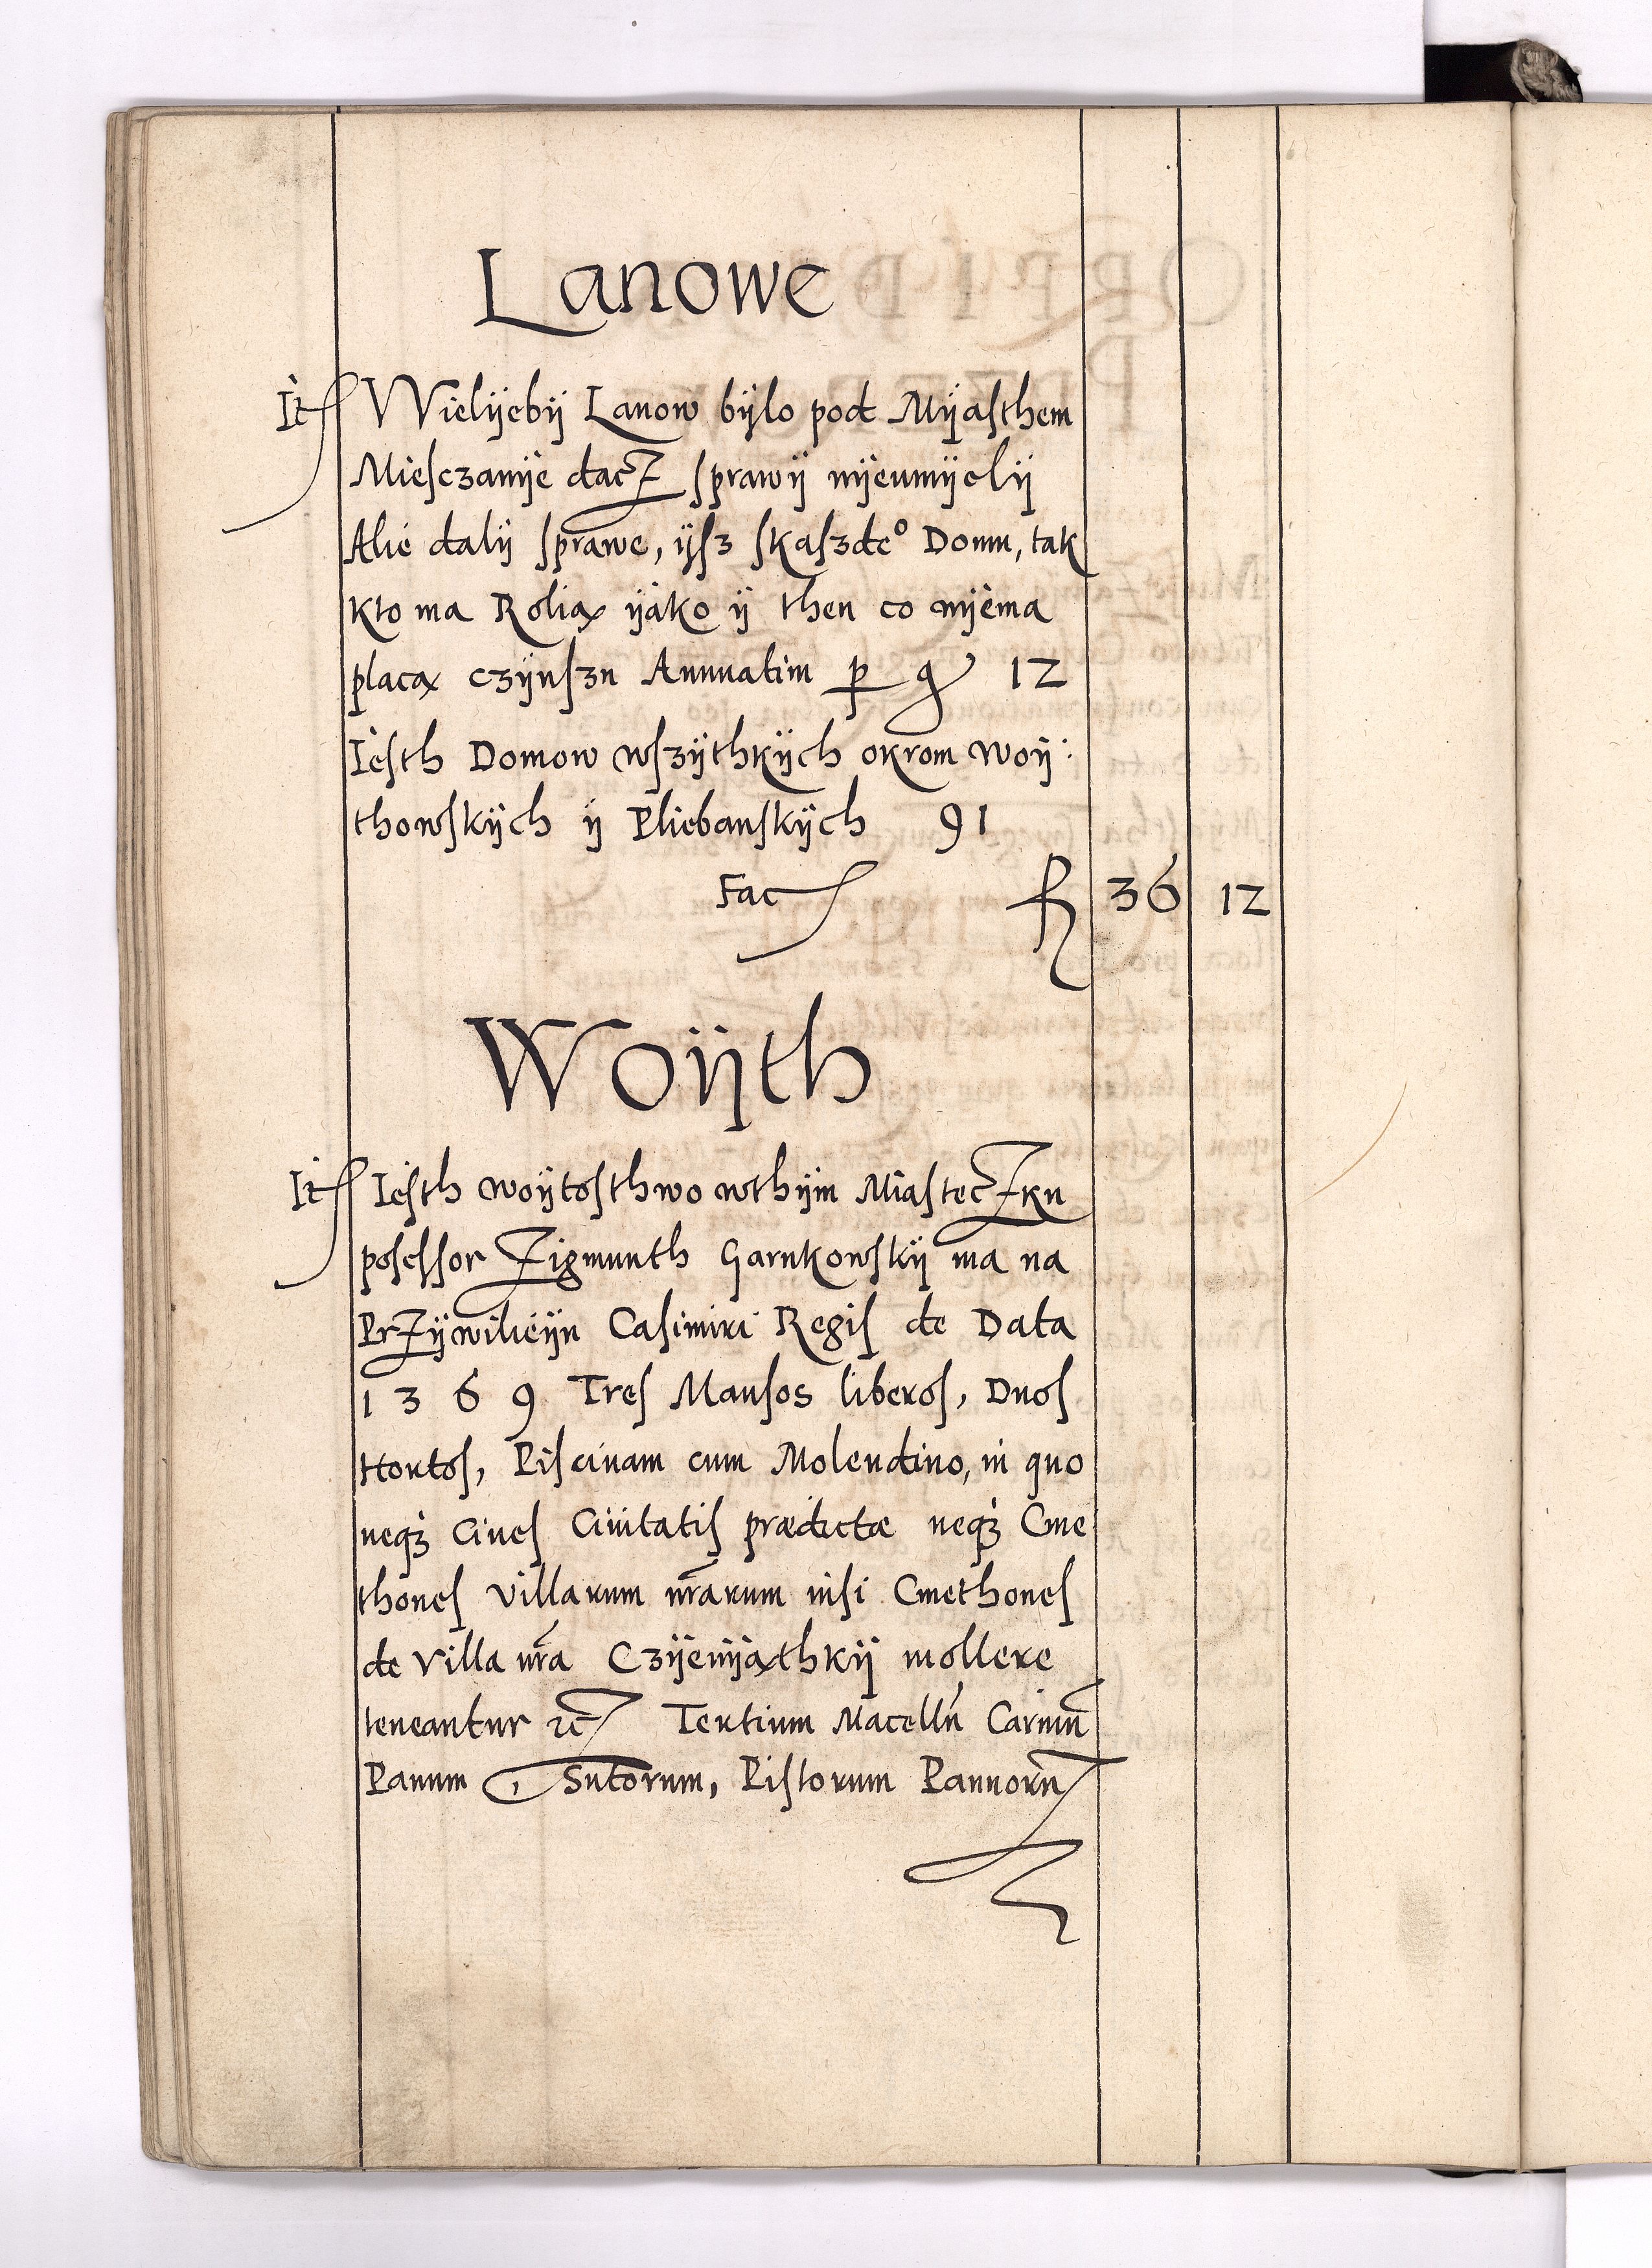 Lanowe
It Wielÿebÿ Lanow bÿlo pod Mÿasthem
Miesczanÿe dacz sprawÿ nÿeumÿelÿ
Alie dalÿ sprawe, ÿsz skaszde° Domu, tak
kto ma Rolią ÿako ÿ then co nÿema
placą czÿnszu Annuatim p g 12
Iesth Domow wszÿthkÿch okrom Woÿ:
thowskÿch ÿ Pliebanskÿch 91
Fac f 36 12
Woÿth
It Iesth woÿtosthwo wthÿm Miasteczku
posessor Zigmunth Garnkowskÿ ma na
Przÿwilieÿu Casimiri Regis de Data
1369 Tres Mansos liberos, Duos
Hortos, Piscinam cum Molendino, in quo
neqꝫ Cives Civitatis prædictæ neqꝫ Cme
thones villarum nr̃arum nisi Cmethones
de Villa nr̃a Czÿenÿąthkÿ mollere
teneantur ꝛc Tertium Macellũ Carniũ
Panum, Sutorum, Pistorum Pannorũ